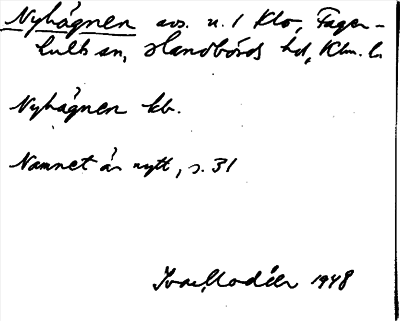 Nyhägnen avs. u. 1 Klo, Fager-
hults sn, Handbörds hd, Klm. l.
Nyhägnen kb.
Namnet är nytt, s. 31
Ivar Modéer 1948